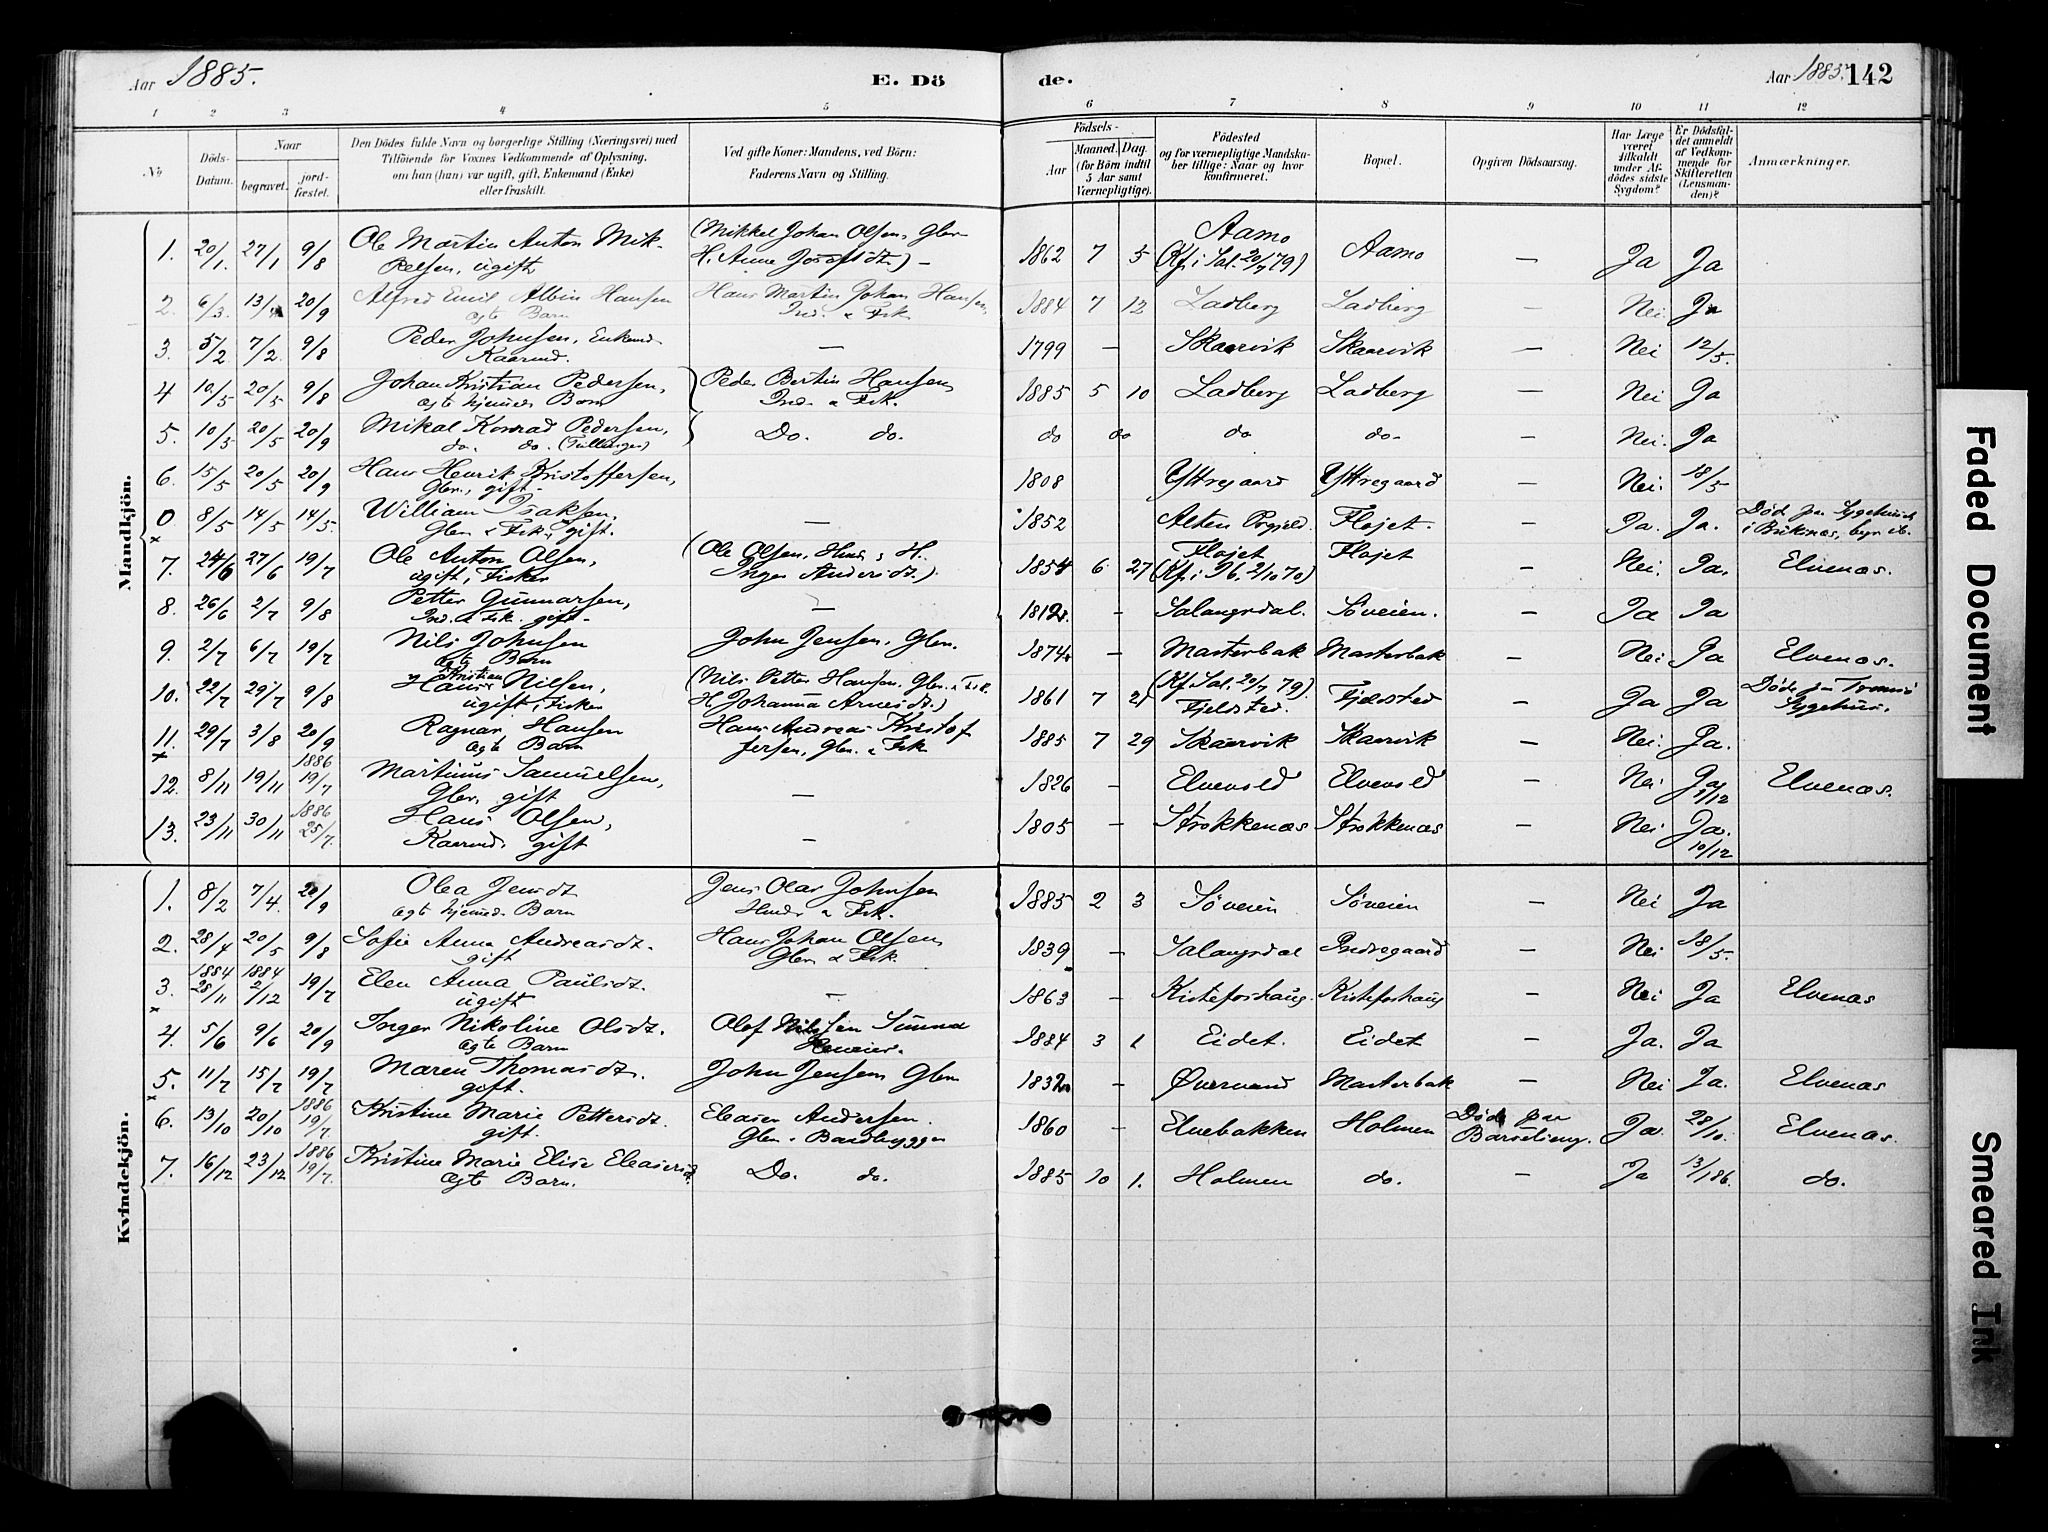 Aar 1885.
E. Dö
de.
Aar 1885. 142
1 2 3 4 5 6 7 8 9 10 11 12
No
Döds-Datum.
Naar
begravet.
jord-fæstet.
Den Dödes fulde Navn og borgerlige Stilling (Næringsvei) med
Tilföiende for Voxnes Vedkommende af Oplysning,
om han (hun) var ugift, gift, Enkemand (Enke)
eller fraskilt.
Ved gifte Koner: Mandens, ved Börn:
Faderens Navn og Stilling.
Födsels-
Aar
Maaned. Dag.
(for Börn indtil
5 Aar samt
Værnepligtige).
Födested
og for værnepligtige Mandska-
ber tillige: Naar og hvor
konfirmeret.
Bopæl.
Opgiven Dödsaarsag.
Har Læge
været
tilkaldt
under Af-
dödes sidste
Sygdom?
Er Dödsfal-
det anmeldt
af Vedkom-
mende for
Skifteretten
(Lensman-
den)?
Anmærkninger.
Mandkjön.
1. 20/1. 27/1 9/8 Ole Martin Anton Mik- (Mikkel Johan Olsen, Gbr 1862 7 5 Aamo Aamo — Ja Ja
kelsen, ugift H. Anne Josefsdt.) — (Kf. i Sal. 20/7 79)
2. 6/3. 13/4 20/9 Alfred Emil Albin Hansen Hans Martin Johan Hansen, 1884 7 12 Ladberg Ladberg — Nei. Ja
ægte Barn Ind. & Fisk.
3. 5/2 7/2. 9/8 Peder Johnsen, Enkemd — 1799 — Skaarvik Skaarvik — Nei 12/5.
Kaarmd.
4 10/5 20/5 9/8 Johan Kristian Pedersen, Peder Bertin Hansen 1885 5 10 Ladberg Ladberg — Nei Ja
ægte hjemmed. Barn Ind. & Fisk.
5. 10/5 20/5 20/9 Mikal Konrad Pedersen, Do. do. do do do do — Nei. Ja
do. do. (Tvillinger)
6. 15/5 20/5 20/9 Hans Henrik Kristoffersen, 1808 Yttregaard Yttregaard — Nei. 18/5
Gbr., gift —
0 8/5 14/5 14/5. William Isaksen, — 1852 Alten Fløjet. — Ja. Ja. Død paa Sygehuset
Gbr & Fisk, gift. i
7. 24/6 27/6 19/7 Ole Anton Olsen, (Ole Olsen, Husmd & H. 1854 6 27 Fløjet Fløjet — Nei. Ja. Elvenæs.
ugift, Fisker Inger Andersdt.) (Kf. i Ib. 2/10 70)
8. 26/6 2/7 9/8 Petter Gunnarsen, — 1812 — Salangsdal. Søveien. — Ja Ja
Ind. & Fisk. gift —
9. 2/7 6/7 19/7 Nils Johnsen John Jensen, Gbr. 1874 — Masterbak Masterbak — Nei Ja Elvenæs.
ægte Barn
10. 22/7 29/7 9/8 Hans Kristian Nilsen, (Nils Petter Hansen, Gbr. & Fisk. 1861 7 21 (Kf. Sal. 20/7 79) Fjeldsted — Ja Ja Døde paa Tromsø
ugift, Fisker H. Johanna Arnesdt.) Fjeldsted. Sygehus.
11. 29/7 3/8 20/9 Ragnar Hansen Hans Andreas Kristof 1885 7 29 Skaarvik Skaarvik — Nei. Ja.
ægte Barn fersen, Gbr. & Fisk
12. 8/11 19/11 1886 19/7 Martinus Samuelsen, — 1826 — Elvevold Elvevold — Nei Ja 1/12 Elvenæs.
Gbr., gift
13. 23/11 30/11 1886 25/7. Hans Olsen, — 1805 — Strokkenæs Strokkenæs — Nei Ja. 10/12
Kaarmd. gift
Kvindekjön.
1. 8/2 7/4. 20/9 Olea Jensdt Jens Olai Johnsen 1885 2 3 Søveien Søveien — Nei Ja
ægte hjemmed. Barn Husmd & Fisk.
2. 28/4 20/5 9/8 Sofie Anna Andreasdt. Hans Johan Olsen 1839 — Salangsdal Indregaard — Nei 18/5.
gift Gbr & Fisk.
3. 1884 28/11 1884 2/12 19/7 Elen Anna Paulsdt. — 1863 — Kistefoshaug. Kistefoshaug — Nei Ja Elvenæs
ugift
4. 5/6 9/6 20/9 Inger Nikoline Olsdt. Olof Nilssen Sunna 1884 3 1 Eidet. Eidet — Ja. Ja
ægte Barn
5. 11/7 15/7 19/7 Maren Thomasdt. John Jensen Gbr 1832 — Øvervand Masterbak — Nei Ja. Elvenæs
gift.
6. 13/10 20/10 1886 19/7. Kristine Marie Pettersdt. Eleaser Andersen. 1860 — Elvebakken Holmen Døde paa Ja. 28/10. Elvenæs.
gift. Gbr & Baadbygger Barselseng.
7. 16/12 23/12 1886 19/7. Kristine Marie Elise Eleasersdt. Do. do. 1885 10 1. Holmen do. — Ja 13/1 86. do.
ægte Barn.
Faded Document
Smeared Ink